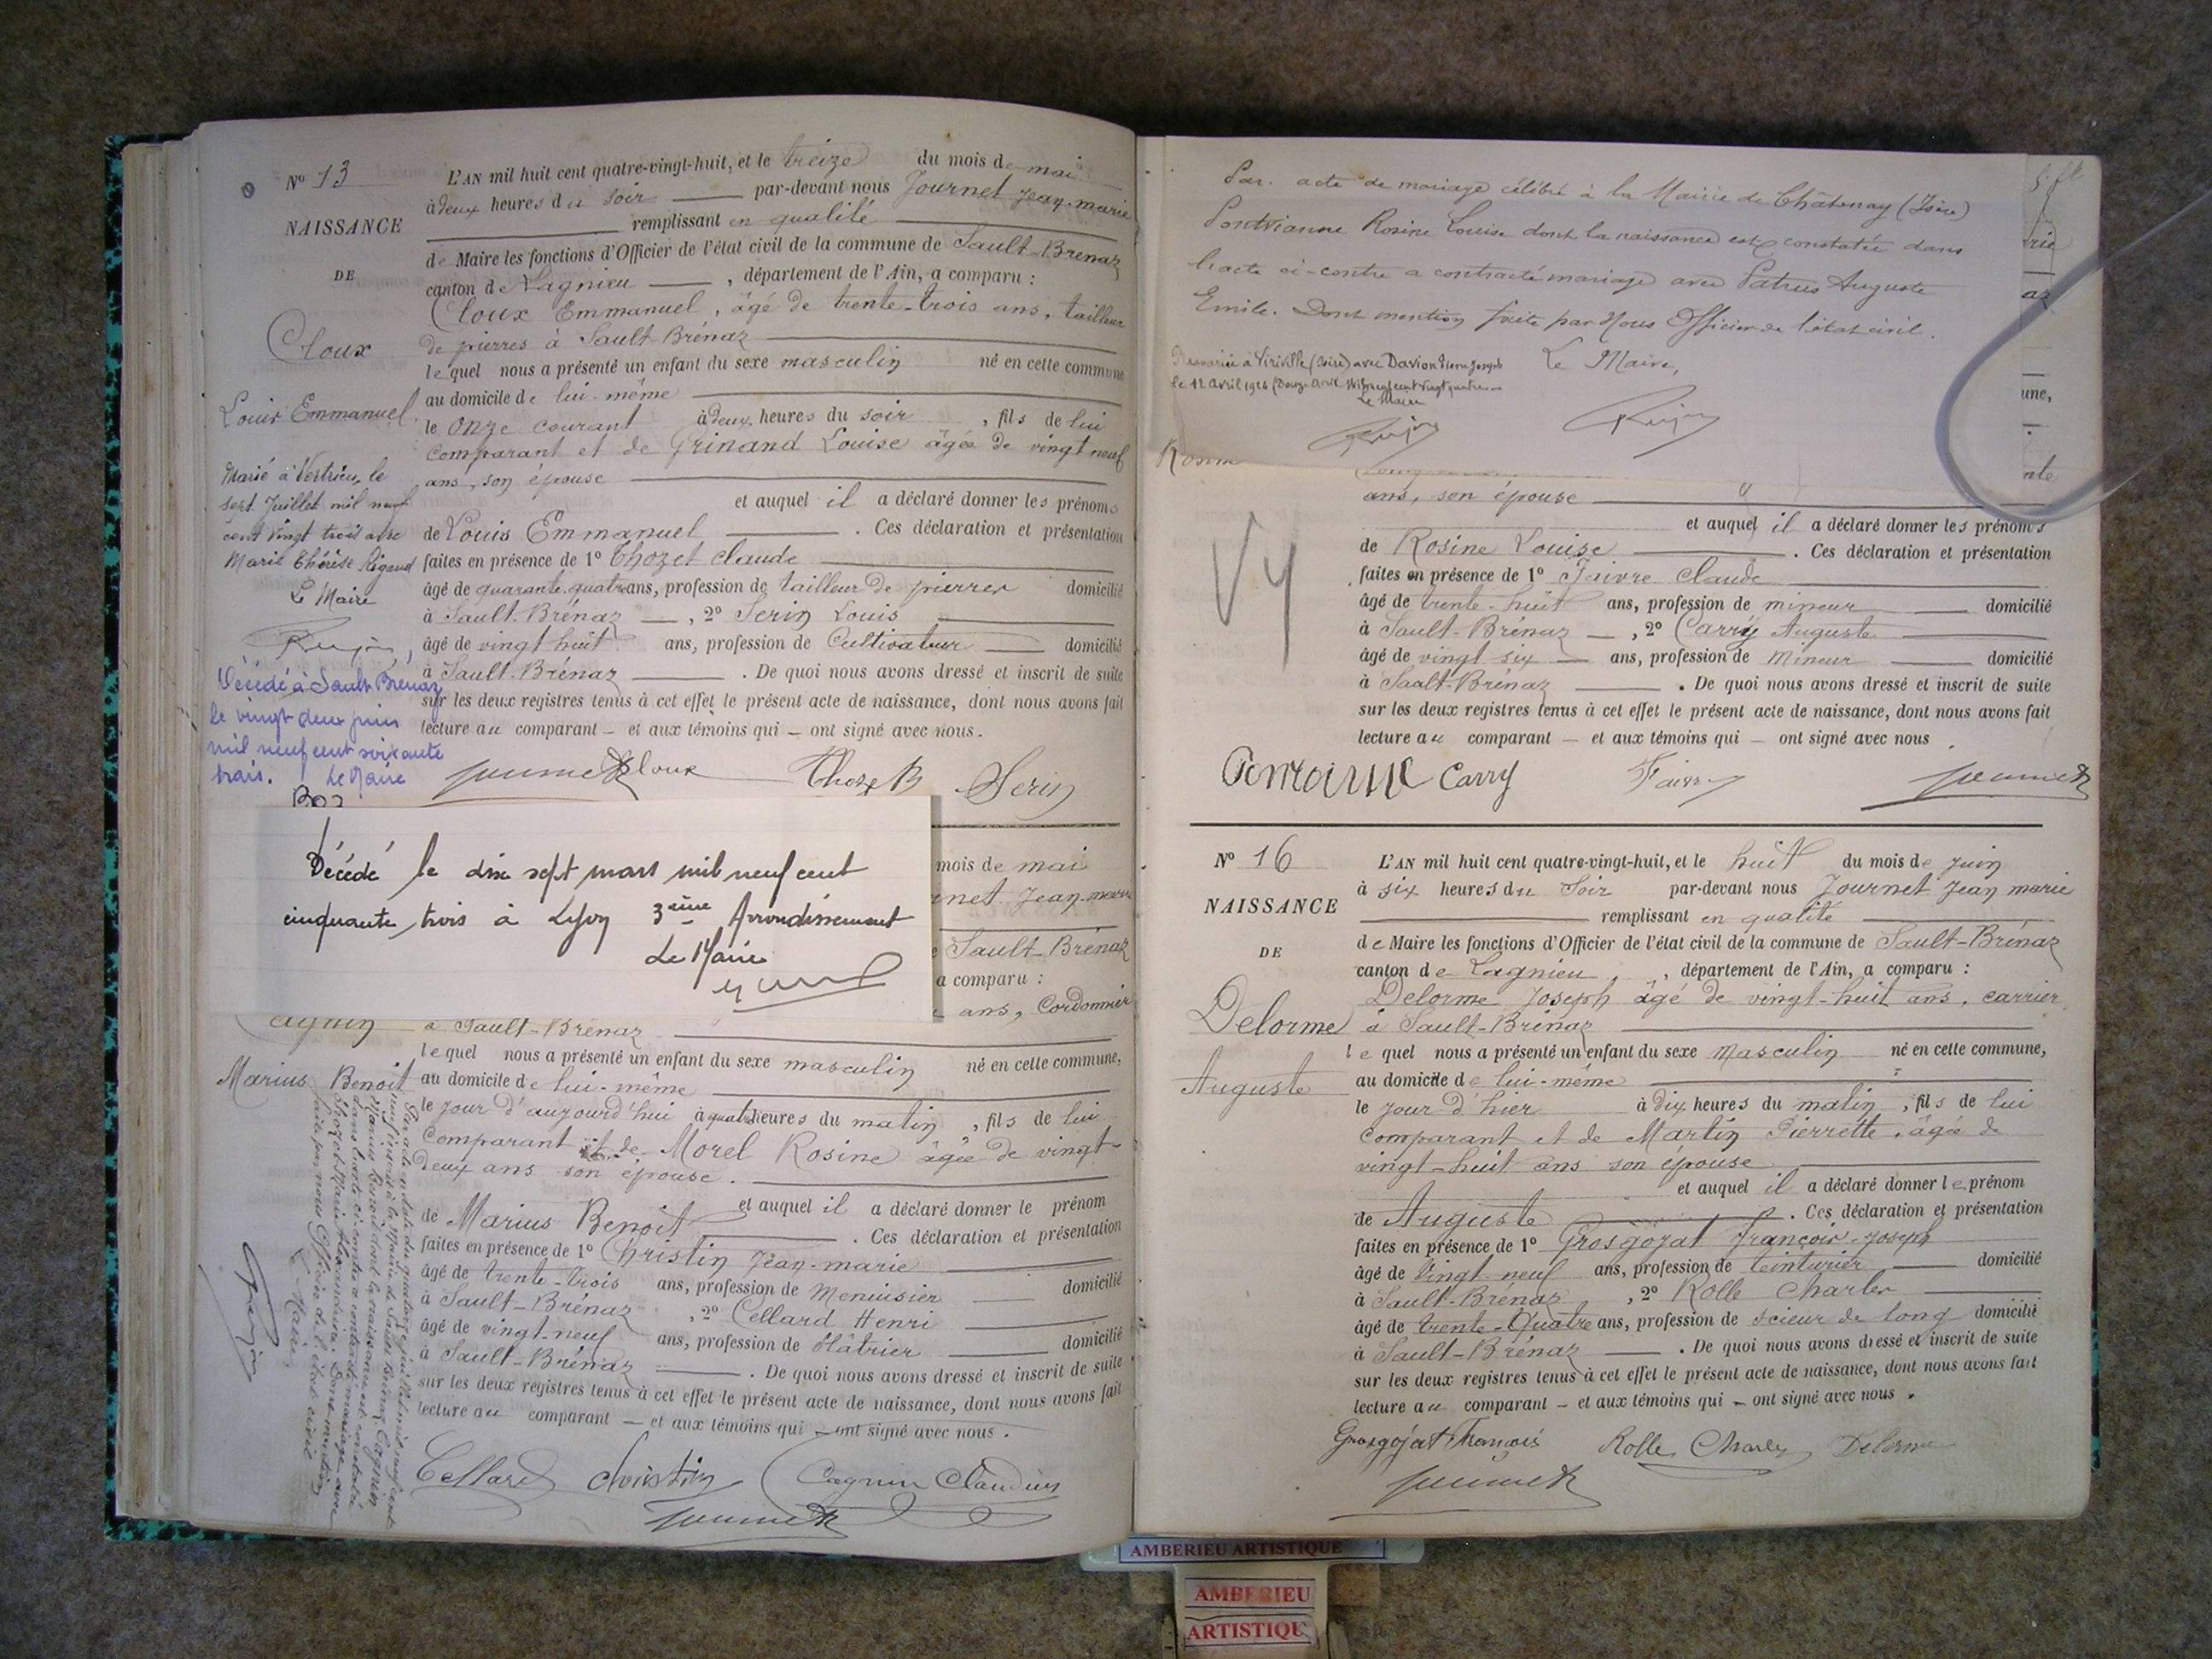 Nº 13
NAISSANCE
DE
Cloux
Louis Emmanuel
Marié à Vertrieu, le
sept Juillet mil neuf
cent vingt trois avec
Marie Thérèse Rigaud
Le Maire
Décédé à Sault-Brénaz
le vingt-deux juin
mil neuf cent soixante
trois. Le Maire
L'AN mil huit cent quatre-vingt-huit, et le treize du mois de mai
à deux heures du soir par-devant nous Journet Jean-marie
remplissant en qualité
de Maire les fonctions d'Officier de l'état civil de la commune de Sault-Brénaz
canton de Lagnieu, département de l'Ain, a comparu :
Cloux Emmanuel, âgé de trente-trois ans, tailleur
de pierres à Sault-Brénaz
lequel nous a présenté un enfant du sexe masculin né en cette commune
au domicile de lui-même
le onze courant à deux heures du soir, fils de lui
comparant et de Grinand Louise âgée de vingt neuf
ans, son épouse
et auquel il a déclaré donner les prénoms
de Louis Emmanuel. Ces déclaration et présentation
faites en présence de 1º Thozet Claude
âgé de quarante-quatre ans, profession de tailleur de pierres domicilié
à Sault-Brénaz, 2º Serin Louis
âgé de vingt huit ans, profession de Cultivateur domicilié
à Sault-Brénaz. De quoi nous avons dressé et inscrit de suite
sur les deux registres tenus à cet effet le présent acte de naissance, dont nous avons fait
lecture au comparant – et aux témoins qui – ont signé avec nous.
Journet Cloux Thozet Serin
Décédé le dix sept mars mil neuf cent
cinquante trois à Lyon 3ème Arrondissement
Le Maire
mois de mai
rnet Jean-marie
e Sault-Brénaz
a comparu :
ans, Cordonnier
Cagnin
Marius Benoit
Par acte en date du quatorze juillet mil neuf cent
Marius Benoit dont la naissance est constatée
dans l'acte ci-contre a contracté mariage avec
Thozet Marie Alexandrine. Dont mention
faite par nous Officier de l'état civil
Le Maire
à Sault-Brénaz
lequel nous a présenté un enfant du sexe masculin né en cette commune,
au domicile de lui-même
le jour d'aujourd'hui à quatre heures du matin, fils de lui
comparant et de Morel Rosine âgée de vingt-
deux ans son épouse.
et auquel il a déclaré donner le prénom
de Marius Benoit. Ces déclaration et présentation
faites en présence de 1º Christin Jean-marie
âgé de trente-trois ans, profession de Menuisier domicilié
à Sault-Brénaz, 2º Cellard Henri
âgé de vingt-neuf ans, profession de Plâtrier domicilié
à Sault-Brénaz. De quoi nous avons dressé et inscrit de suite
sur les deux registres tenus à cet effet le présent acte de naissance, dont nous avons fait
lecture au comparant – et aux témoins qui – ont signé avec nous.
Cellard Christin Cagnin Claudius
Journet
Par acte de mariage célébré à la Mairie de Châtenay (Isère)
Pontvianne Rosine Louise dont la naissance est constatée dans
l'acte ci-contre a contracté mariage avec Patrus Auguste
Emile. Dont mention faite par Nous Officier de l'état civil.
Le Maire,
Remariée à Viriville (Isère) avec Davion Pierre Joseph
le 12 Avril 1924 (Douze Avril Mil neuf cent vingt quatre
Le Maire
une,
nte
Rosine
ans, son épouse
et auquel il a déclaré donner les prénoms
de Rosine Louise. Ces déclaration et présentation
faites en présence de 1º Faivre Claude
âgé de trente-huit ans, profession de mineur domicilié
à Sault-Brénaz, 2º Carry Auguste
âgé de vingt six ans, profession de Mineur domicilié
à Sault-Brénaz. De quoi nous avons dressé et inscrit de suite
sur les deux registres tenus à cet effet le présent acte de naissance, dont nous avons fait
lecture au comparant – et aux témoins qui – ont signé avec nous.
Carry Faivre Journet
Nº 16
NAISSANCE
DE
Delorme
Auguste
L'AN mil huit cent quatre-vingt-huit, et le huit du mois de juin
à six heures du Soir par-devant nous Journet Jean marie
remplissant en qualité
de Maire les fonctions d'Officier de l'état civil de la commune de Sault-Brénaz
canton de Lagnieu, département de l'Ain, a comparu :
Delorme Joseph âgé de vingt-huit ans, carrier
à Sault-Brénaz
lequel nous a présenté un enfant du sexe Masculin né en cette commune,
au domicile de lui-même
le jour d'hier à dix heures du matin, fils de lui
comparant et de Martin Pierrette, âgée de
vingt-huit ans son épouse
et auquel il a déclaré donner le prénom
de Auguste. Ces déclaration et présentation
faites en présence de 1º Grosgojat François-Joseph
âgé de Vingt-neuf ans, profession de teinturier domicilié
à Sault-Brénaz, 2º Rolle Charles
âgé de trente-Quatre ans, profession de scieur de long domicilié
à Sault-Brénaz. De quoi nous avons dressé et inscrit de suite
sur les deux registres tenus à cet effet le présent acte de naissance, dont nous avons fait
lecture au comparant – et aux témoins qui – ont signé avec nous.
Grosgojat François Rolle Charles Delorme
Journet
AMBERIEU ARTISTIQUE
AMBERIEU
ARTISTIQUE